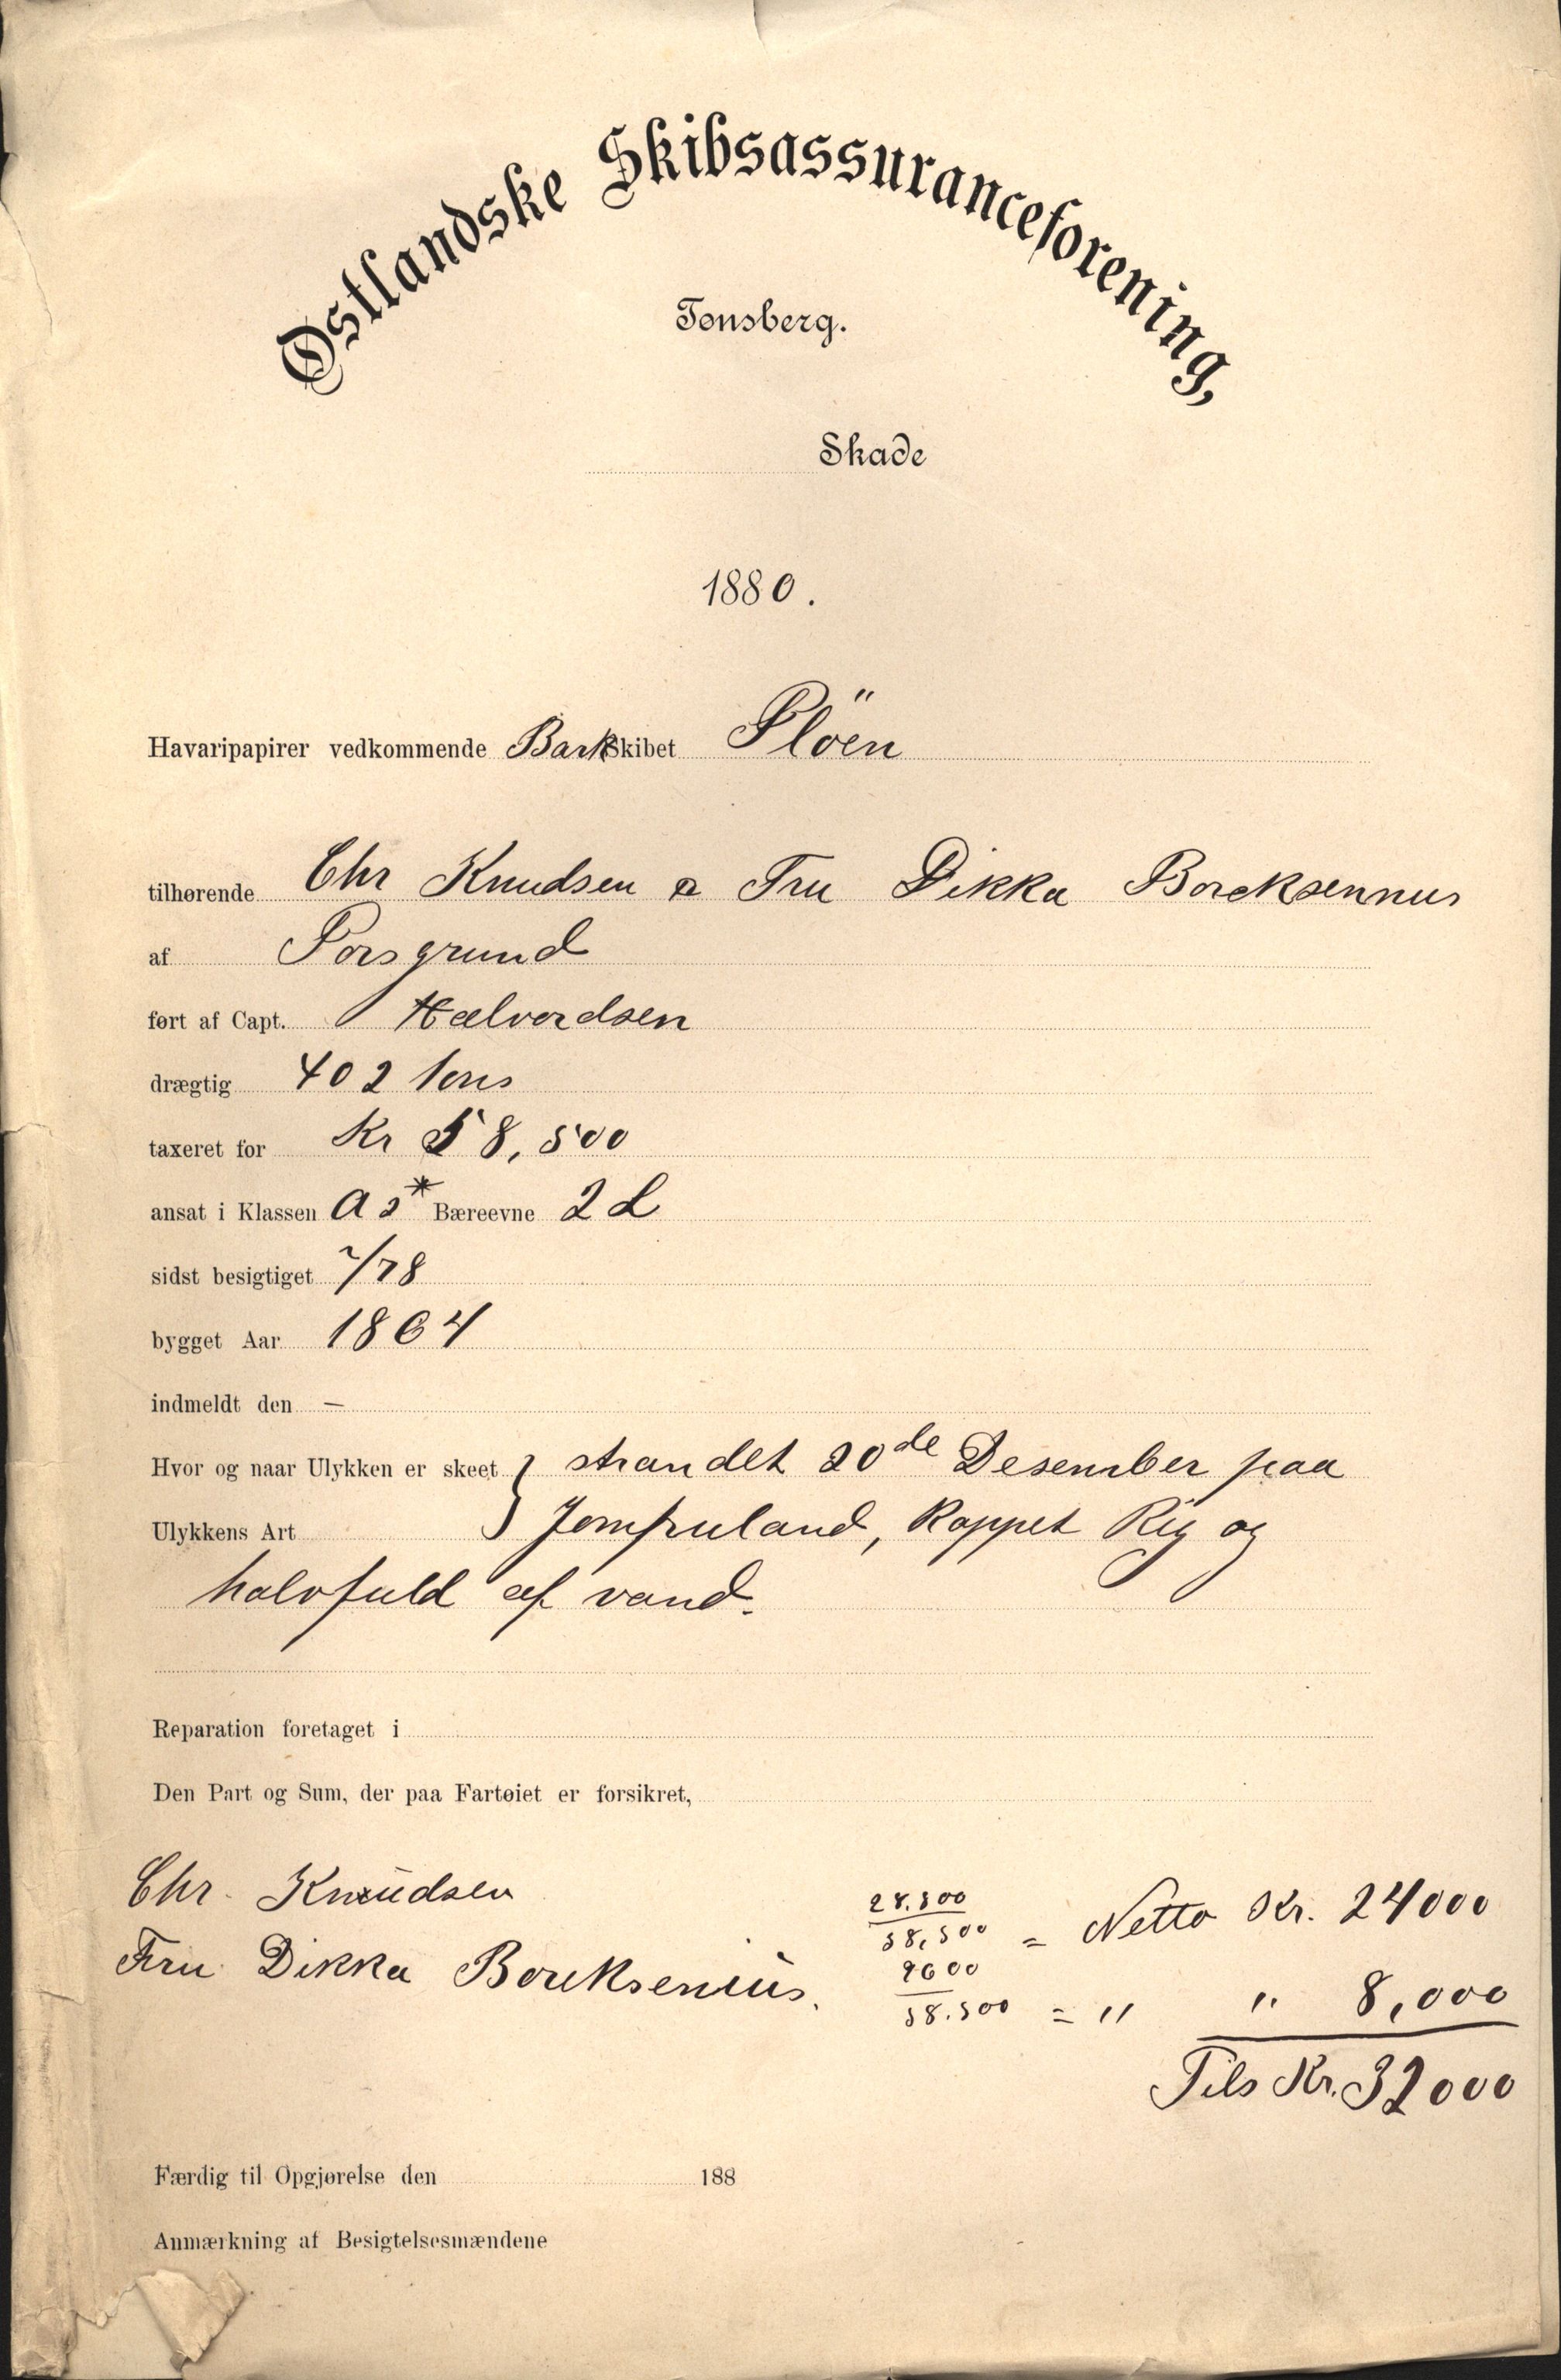 Østlandske Skibsassuranceforening,
Tønsberg.
Skade
1880.
Havaripapirer vedkommende Bark Skibet Plöen
tilhørende Chr Knudsen & Fru Dikka Borcksennus
af Porsgrund
ført af Capt. Halvordsen
drægtig 402 tons
taxeret for Kr 58,500
ansat i Klassen A2* Bæreevne 2 L
sidst besigtiget /78
bygget Aar 1864
indmeldt den —
Hvor og naar Ulykken er skeet } strandet 20de Desember paa
Ulykkens Art Jomfruland, Kappet Rig og
halvfuld af vand.
Reparation foretaget i
Den Part og Sum, der paa Fartøiet er forsikret,
Chr. Knudsen 28.800/58,500 = Netto Kr. 24000
Fru Dikka Borcksenius. 9600/58.500 = " " 8,000
Tils Kr. 32000
Færdig til Opgjørelse den 188
Anmærkning af Besigtelsesmændene